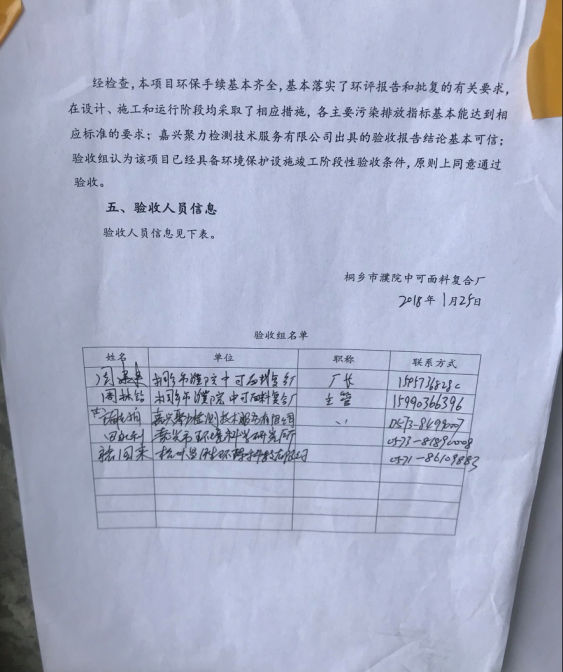 经检查,本项目环保手续基本齐全,基本落实了环评报告和批复的有关要求,
在设计、施工和运行阶段均采取了相应措施,各主要污染排放指标基本能达到相
应标准的要求;嘉兴聚力检测技术服务有限公司出具的验收报告结论基本可信;
验收组认为该项目已经具备环境保护设施竣工阶段性验收条件,原则上同意通过
验收。
五、验收人员信息
验收人员信息见下表。
桐乡市濮院中可面料复合厂
2018年1月25日
验收组名单
姓名 单位 职称 联系方式
桐乡市濮院中可面料复合厂 厂长
周林 桐乡市濮院中可面料复合厂 主管 15990366396
嘉兴聚力检测技术服务有限公司
嘉兴市环境科学研究所
张国来 0571-86109883